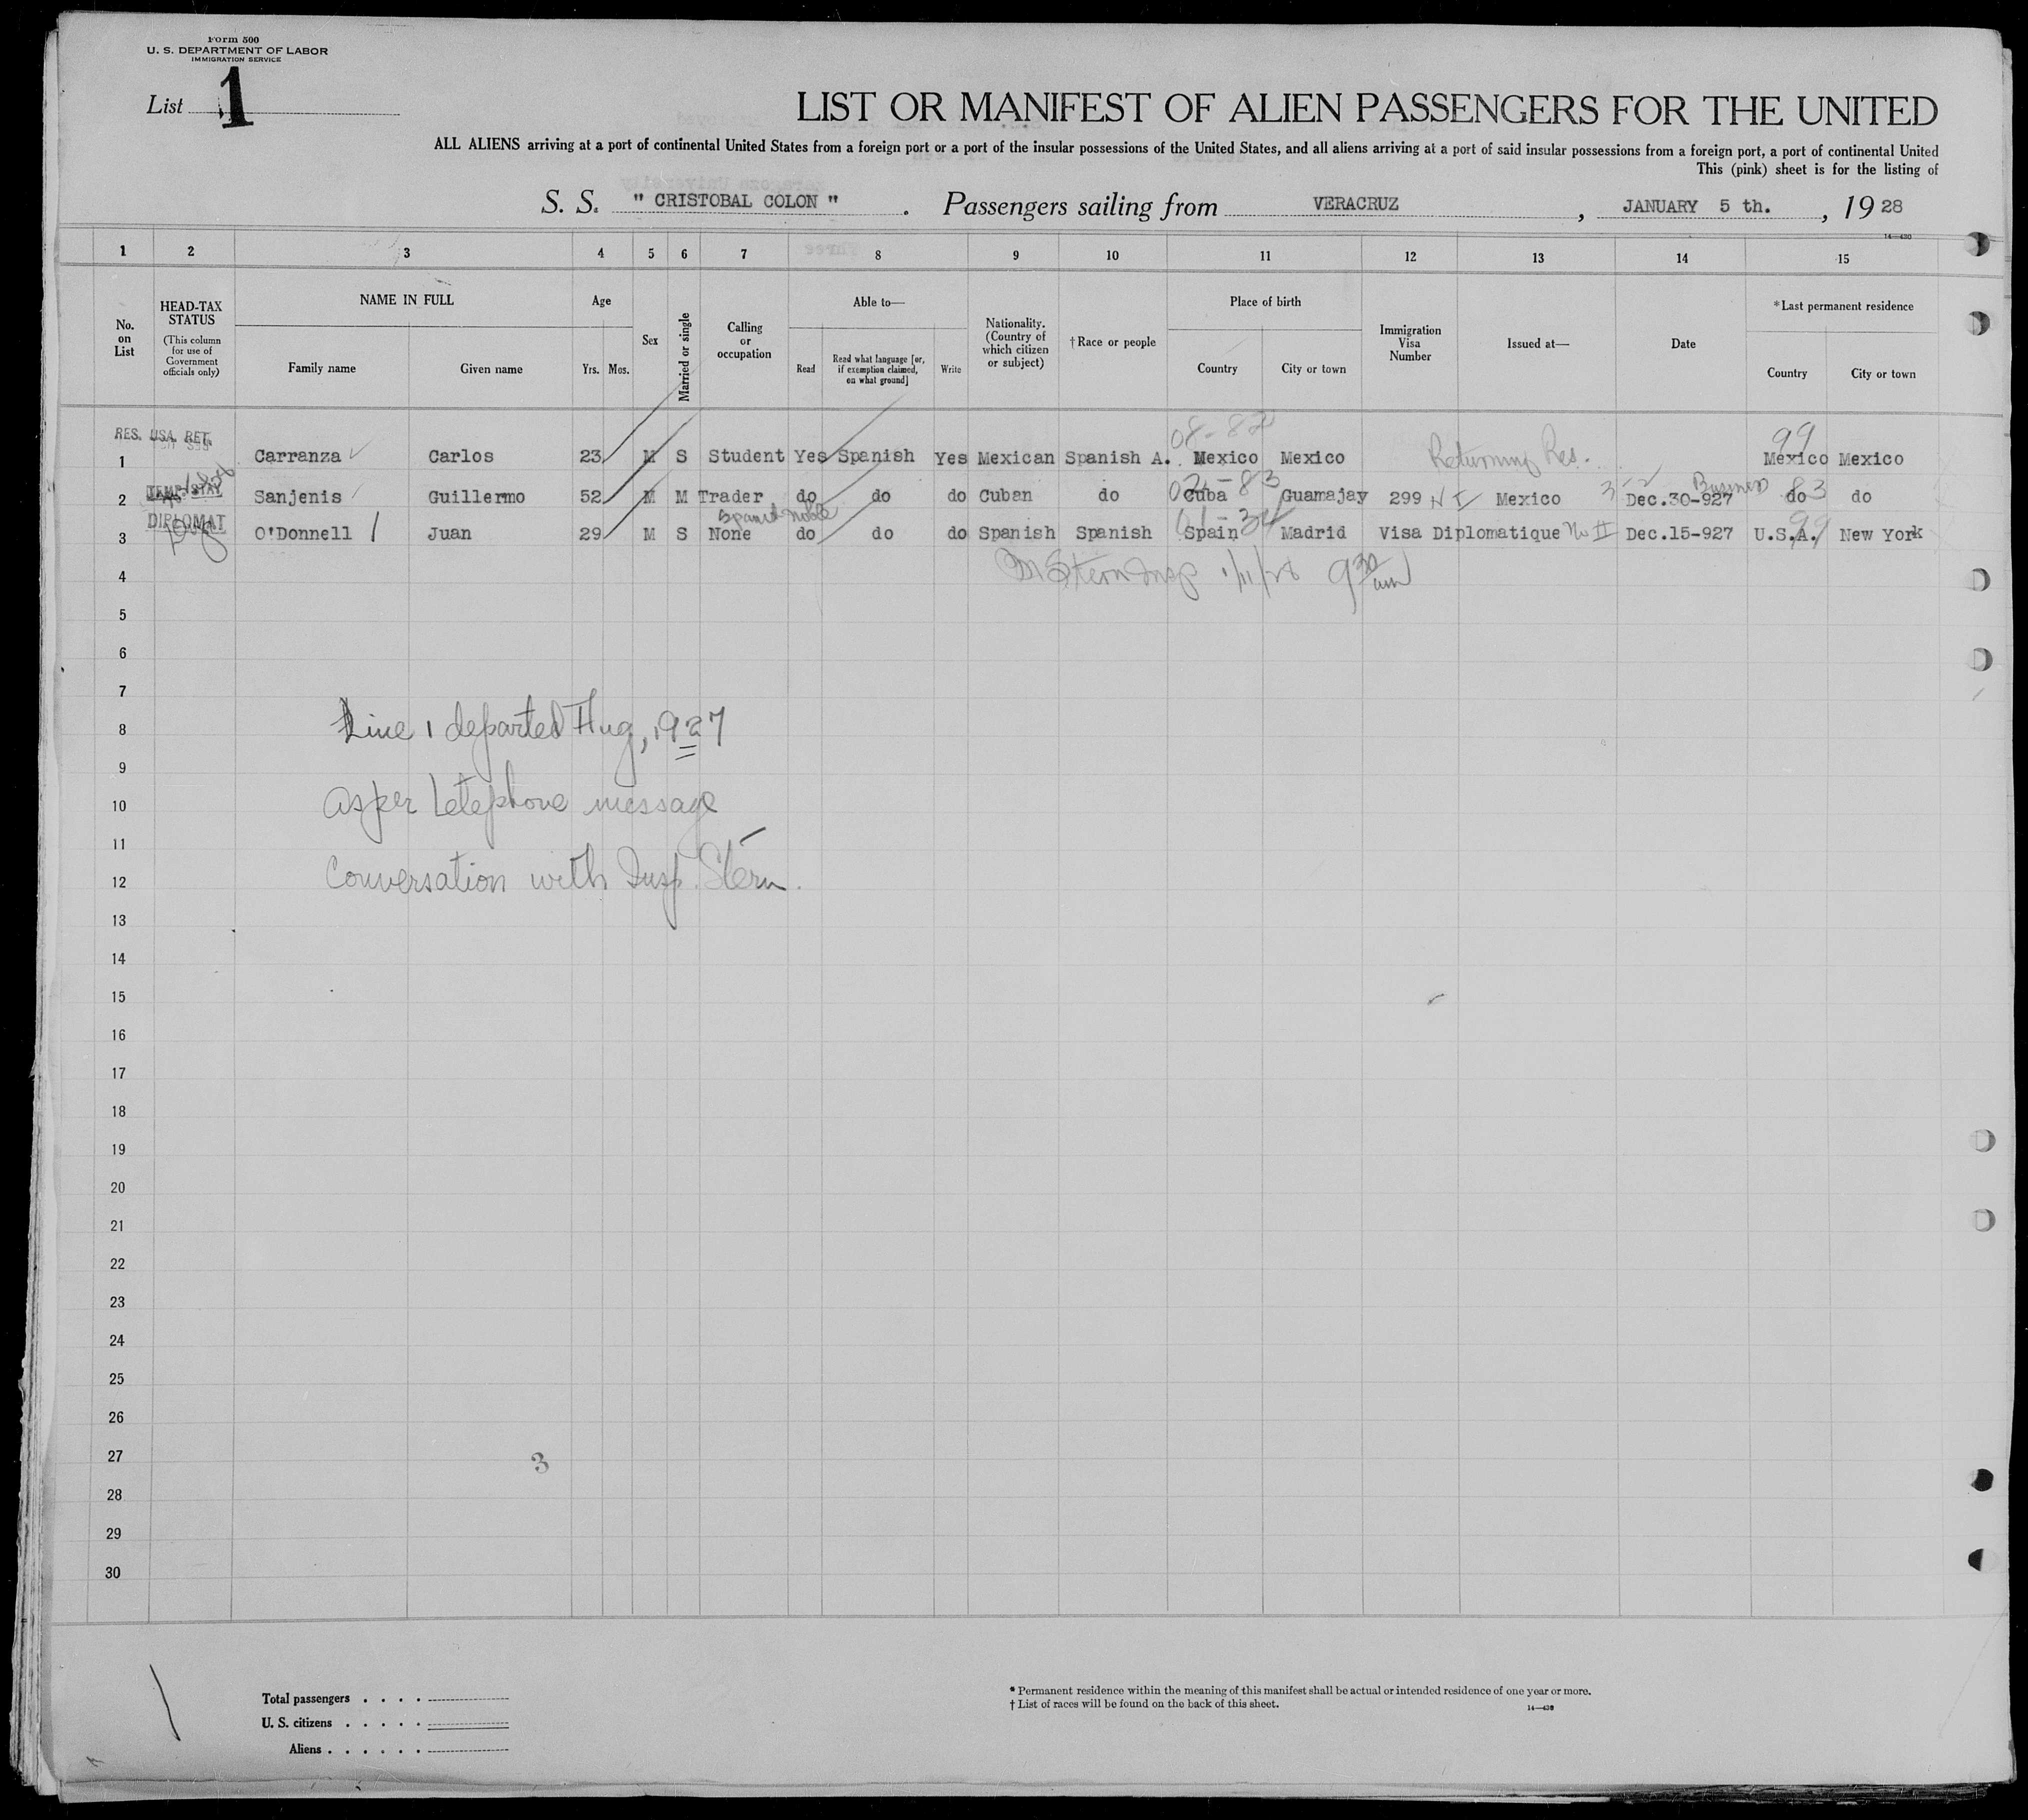 Form 500
U. S. DEPARTMENT OF LABOR
IMMIGRATION SERVICE
List 1
LIST OR MANIFEST OF ALIEN PASSENGERS FOR THE UNITED
ALL ALIENS arriving at a port of continental United States from a foreign port or a port of the insular possessions of the United States, and all aliens arriving at a port of said insular possessions from a foreign port, a port of continental United
This (pink) sheet is for the listing of
S. S. " CRISTOBAL COLON " . Passengers sailing from VERACRUZ , JANUARY 5 th. , 19 28
14—430
1 2 3 4 5 6 7 8 9 10 11 12 13 14 15
No. on List
HEAD-TAX STATUS
(This column for use of Government officials only)
NAME IN FULL
Family name Given name
Age
Yrs. Mos.
Sex
Married or single
Calling or occupation
Able to—
Read
Read what language [or, if exemption claimed, on what ground]
Write
Nationality. (Country of which citizen or subject)
†Race or people
Place of birth
Country City or town
Immigration Visa Number
Issued at—
Date
*Last permanent residence
Country City or town
RES. USA RET.
08-82
99
1 Carranza Carlos 23 M S Student Yes Spanish Yes Mexican Spanish A. Mexico Mexico Returning Res. Mexico Mexico
TEMP. STAY
02-83
3-2 Business 83
2 Sanjenis Guillermo 52 M M Trader do do do Cuban do Cuba Guamajay 299 N I Mexico Dec.30-927 do do
DIPLOMAT
Spanish noble
99
3 O'Donnell Juan 29 M S None do do do Spanish Spanish Spain Madrid Visa Diplomatique No II Dec.15-927 U.S.A. New York
M Stern Insp 1/11/28 9 30 am
4
5
6
7
8
Line 1 departed Aug, 1927
9
10
as per telephone message
11
12
Conversation with Insp. Stern.
13
14
15
16
17
18
19
20
21
22
23
24
25
26
27
3
28
29
30
Total passengers . . . .
U. S. citizens . . . . .
Aliens . . . . . .
* Permanent residence within the meaning of this manifest shall be actual or intended residence of one year or more.
† List of races will be found on the back of this sheet.
14—430